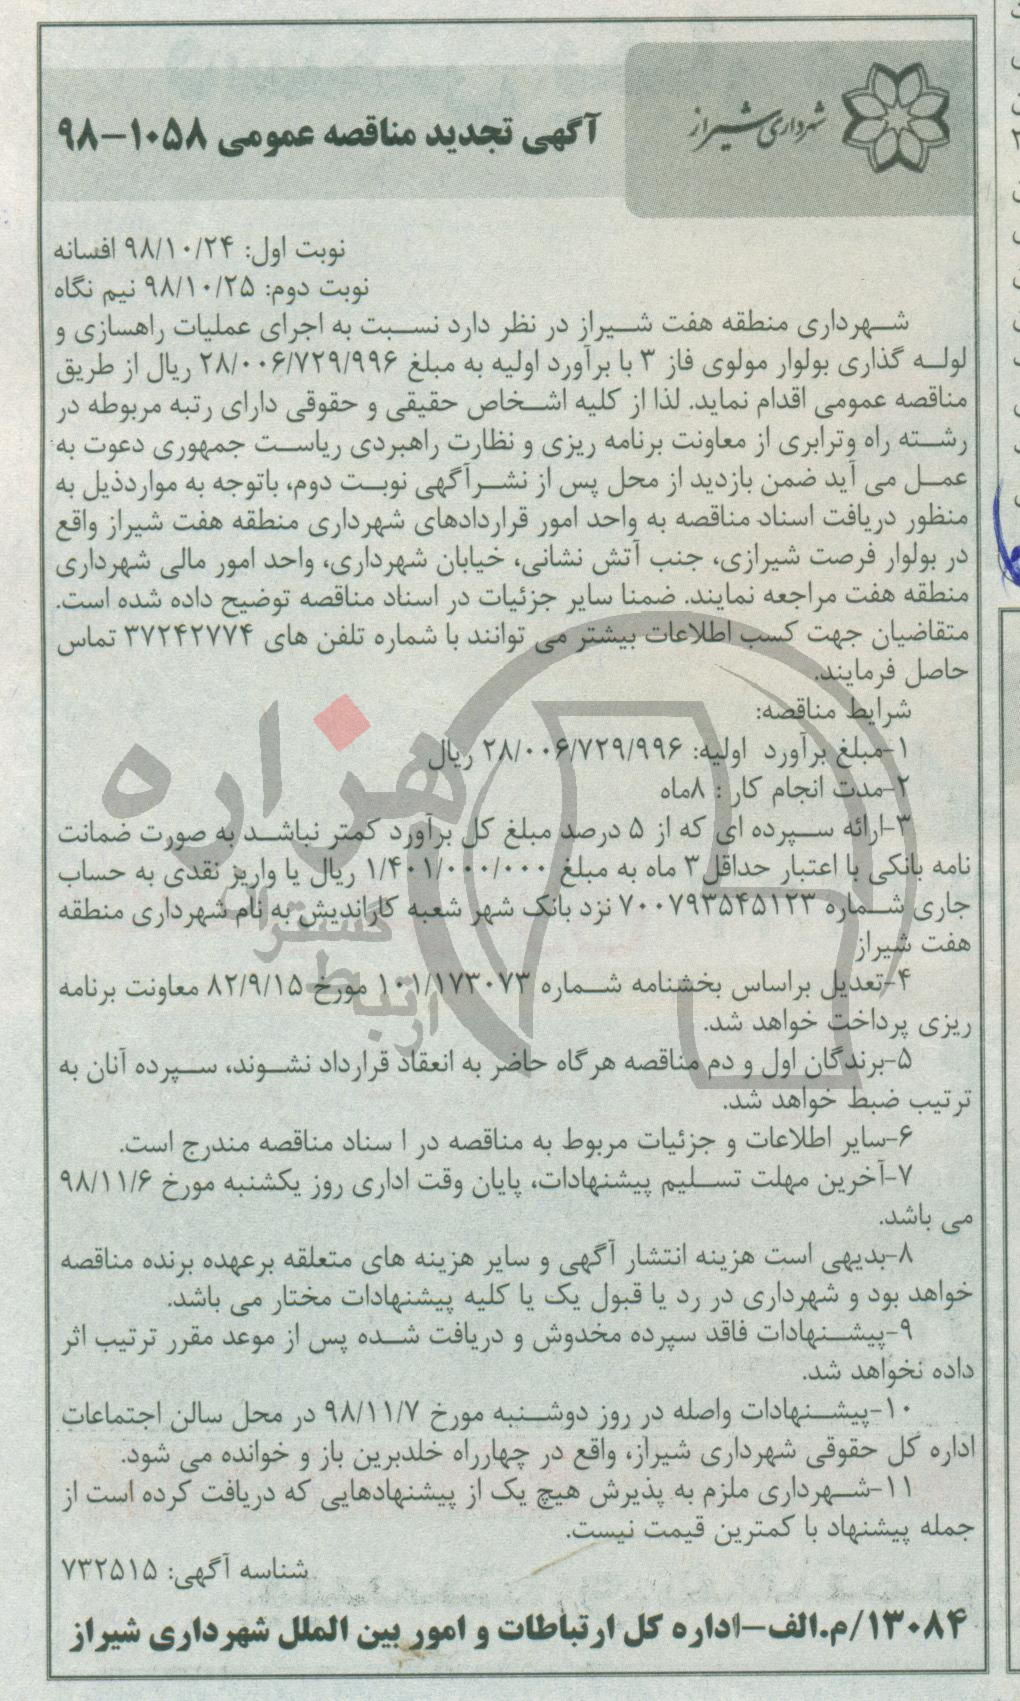 شهرداری شیراز
آگهی تجدید مناقصه عمومی ۱۰۵۸-۹۸
نوبت اول: ۹۸/۱۰/۲۴ افسانه
نوبت دوم: ۹۸/۱۰/۲۵ نیم نگاه
شهرداری منطقه هفت شیراز در نظر دارد نسبت به اجرای عملیات راهسازی و
لوله گذاری بولوار مولوی فاز ۳ با برآورد اولیه به مبلغ ۲۸/۰۰۶/۷۲۹/۹۹۶ ریال از طریق
مناقصه عمومی اقدام نماید. لذا از کلیه اشخاص حقیقی و حقوقی دارای رتبه مربوطه در
رشته راه وترابری از معاونت برنامه ریزی و نظارت راهبردی ریاست جمهوری دعوت به
عمل می آید ضمن بازدید از محل پس از نشرآگهی نوبت دوم، باتوجه به مواردذیل به
منظور دریافت اسناد مناقصه به واحد امور قراردادهای شهرداری منطقه هفت شیراز واقع
در بولوار فرصت شیرازی، جنب آتش نشانی، خیابان شهرداری، واحد امور مالی شهرداری
منطقه هفت مراجعه نمایند. ضمنا سایر جزئیات در اسناد مناقصه توضیح داده شده است.
متقاضیان جهت کسب اطلاعات بیشتر می توانند با شماره تلفن های ۳۷۲۴۲۷۷۴ تماس
حاصل فرمایند.
شرایط مناقصه:
۱-مبلغ برآورد اولیه: ۲۸/۰۰۶/۷۲۹/۹۹۶ ریال
۲-مدت انجام کار : ۸ماه
۳-ارائه سپرده ای که از ۵ درصد مبلغ کل برآورد کمتر نباشد به صورت ضمانت
نامه بانکی با اعتبار حداقل۳ ماه به مبلغ ۱/۴۰۱/۰۰۰/۰۰۰ ریال یا واریز نقدی به حساب
جاری شماره ۷۰۰۷۹۳۵۴۵۱۲۳ نزد بانک شهر شعبه کاراندیش به نام شهرداری منطقه
هفت شیراز
۴-تعدیل براساس بخشنامه شماره ۱۰۱/۱۷۳۰۷۳ مورخ ۸۲/۹/۱۵ معاونت برنامه
ریزی پرداخت خواهد شد.
۵-برندگان اول و دم مناقصه هرگاه حاضر به انعقاد قرارداد نشوند، سپرده آنان به
ترتیب ضبط خواهد شد.
۶-سایر اطلاعات و جزئیات مربوط به مناقصه در ا سناد مناقصه مندرج است.
۷-آخرین مهلت تسلیم پیشنهادات، پایان وقت اداری روز یکشنبه مورخ ۹۸/۱۱/۶
می باشد.
۸-بدیهی است هزینه انتشار آگهی و سایر هزینه های متعلقه برعهده برنده مناقصه
خواهد بود و شهرداری در رد یا قبول یک یا کلیه پیشنهادات مختار می باشد.
۹-پیشنهادات فاقد سپرده مخدوش و دریافت شده پس از موعد مقرر ترتیب اثر
داده نخواهد شد.
۱۰-پیشنهادات واصله در روز دوشنبه مورخ ۹۸/۱۱/۷ در محل سالن اجتماعات
اداره کل حقوقی شهرداری شیراز، واقع در چهارراه خلدبرین باز و خوانده می شود.
۱۱-شهرداری ملزم به پذیرش هیچ یک از پیشنهادهایی که دریافت کرده است از
جمله پیشنهاد با کمترین قیمت نیست.
شناسه آگهی: ۷۳۲۵۱۵
۱۳۰۸۴/م.الف-اداره کل ارتباطات و امور بین الملل شهرداری شیراز
هزاره
گستر
رتبه